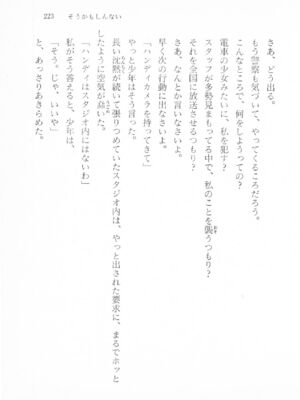 223 そうかもしんない
さあ、どう出る。
もう警察も気づいて、やってくるころだろう。
こんなところで、何をしようっての?
電車の少女みたいに、私を犯す?
スタッフが多勢見まもってる中で、私のことを襲うつもり?
それを全国に放送させるつもり?
さあ、なんとか言いなさいよ。
早く次の行動に出なさいよ。
「ハンディカメラを持ってきて」
やっと少年はそう言った。
長い沈黙が続いて張りつめていたスタジオ内は、やっと出された要求に、まるでホッと
したように空気が戻いた。
「ハンディはスタジオ内にはないわ」
私がそう答えると、少年は、
「そう。じゃ、いいや」
と、あっさりあきらめた。